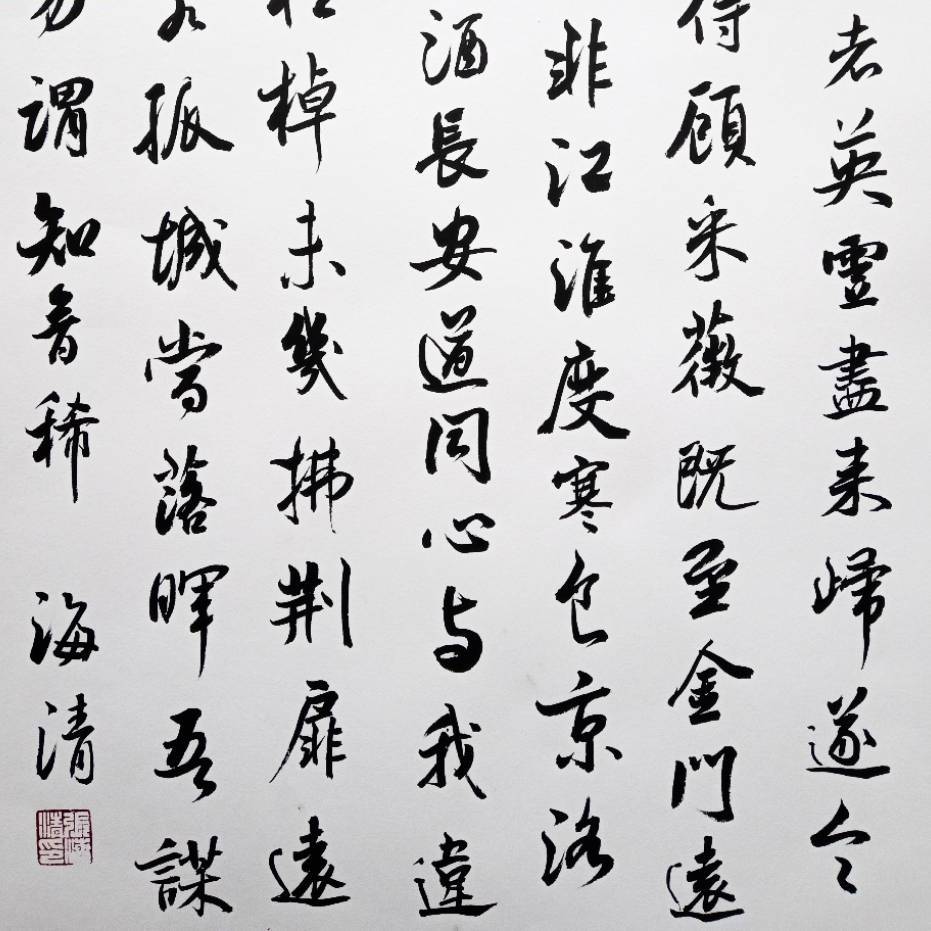 者英靈盡来歸遂令
得顧采薇既至金門遠
非江淮度寒食京洛
酒長安道同心与我違
桂棹未幾拂荆扉遠
客孤城當落暉吾謀
勿謂知音稀
海清
張海清印